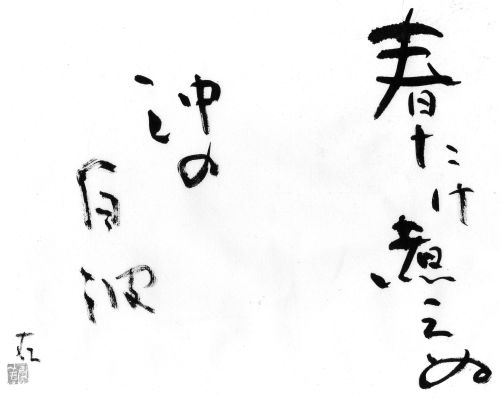 春たけ煮えぬ
沖の
白波